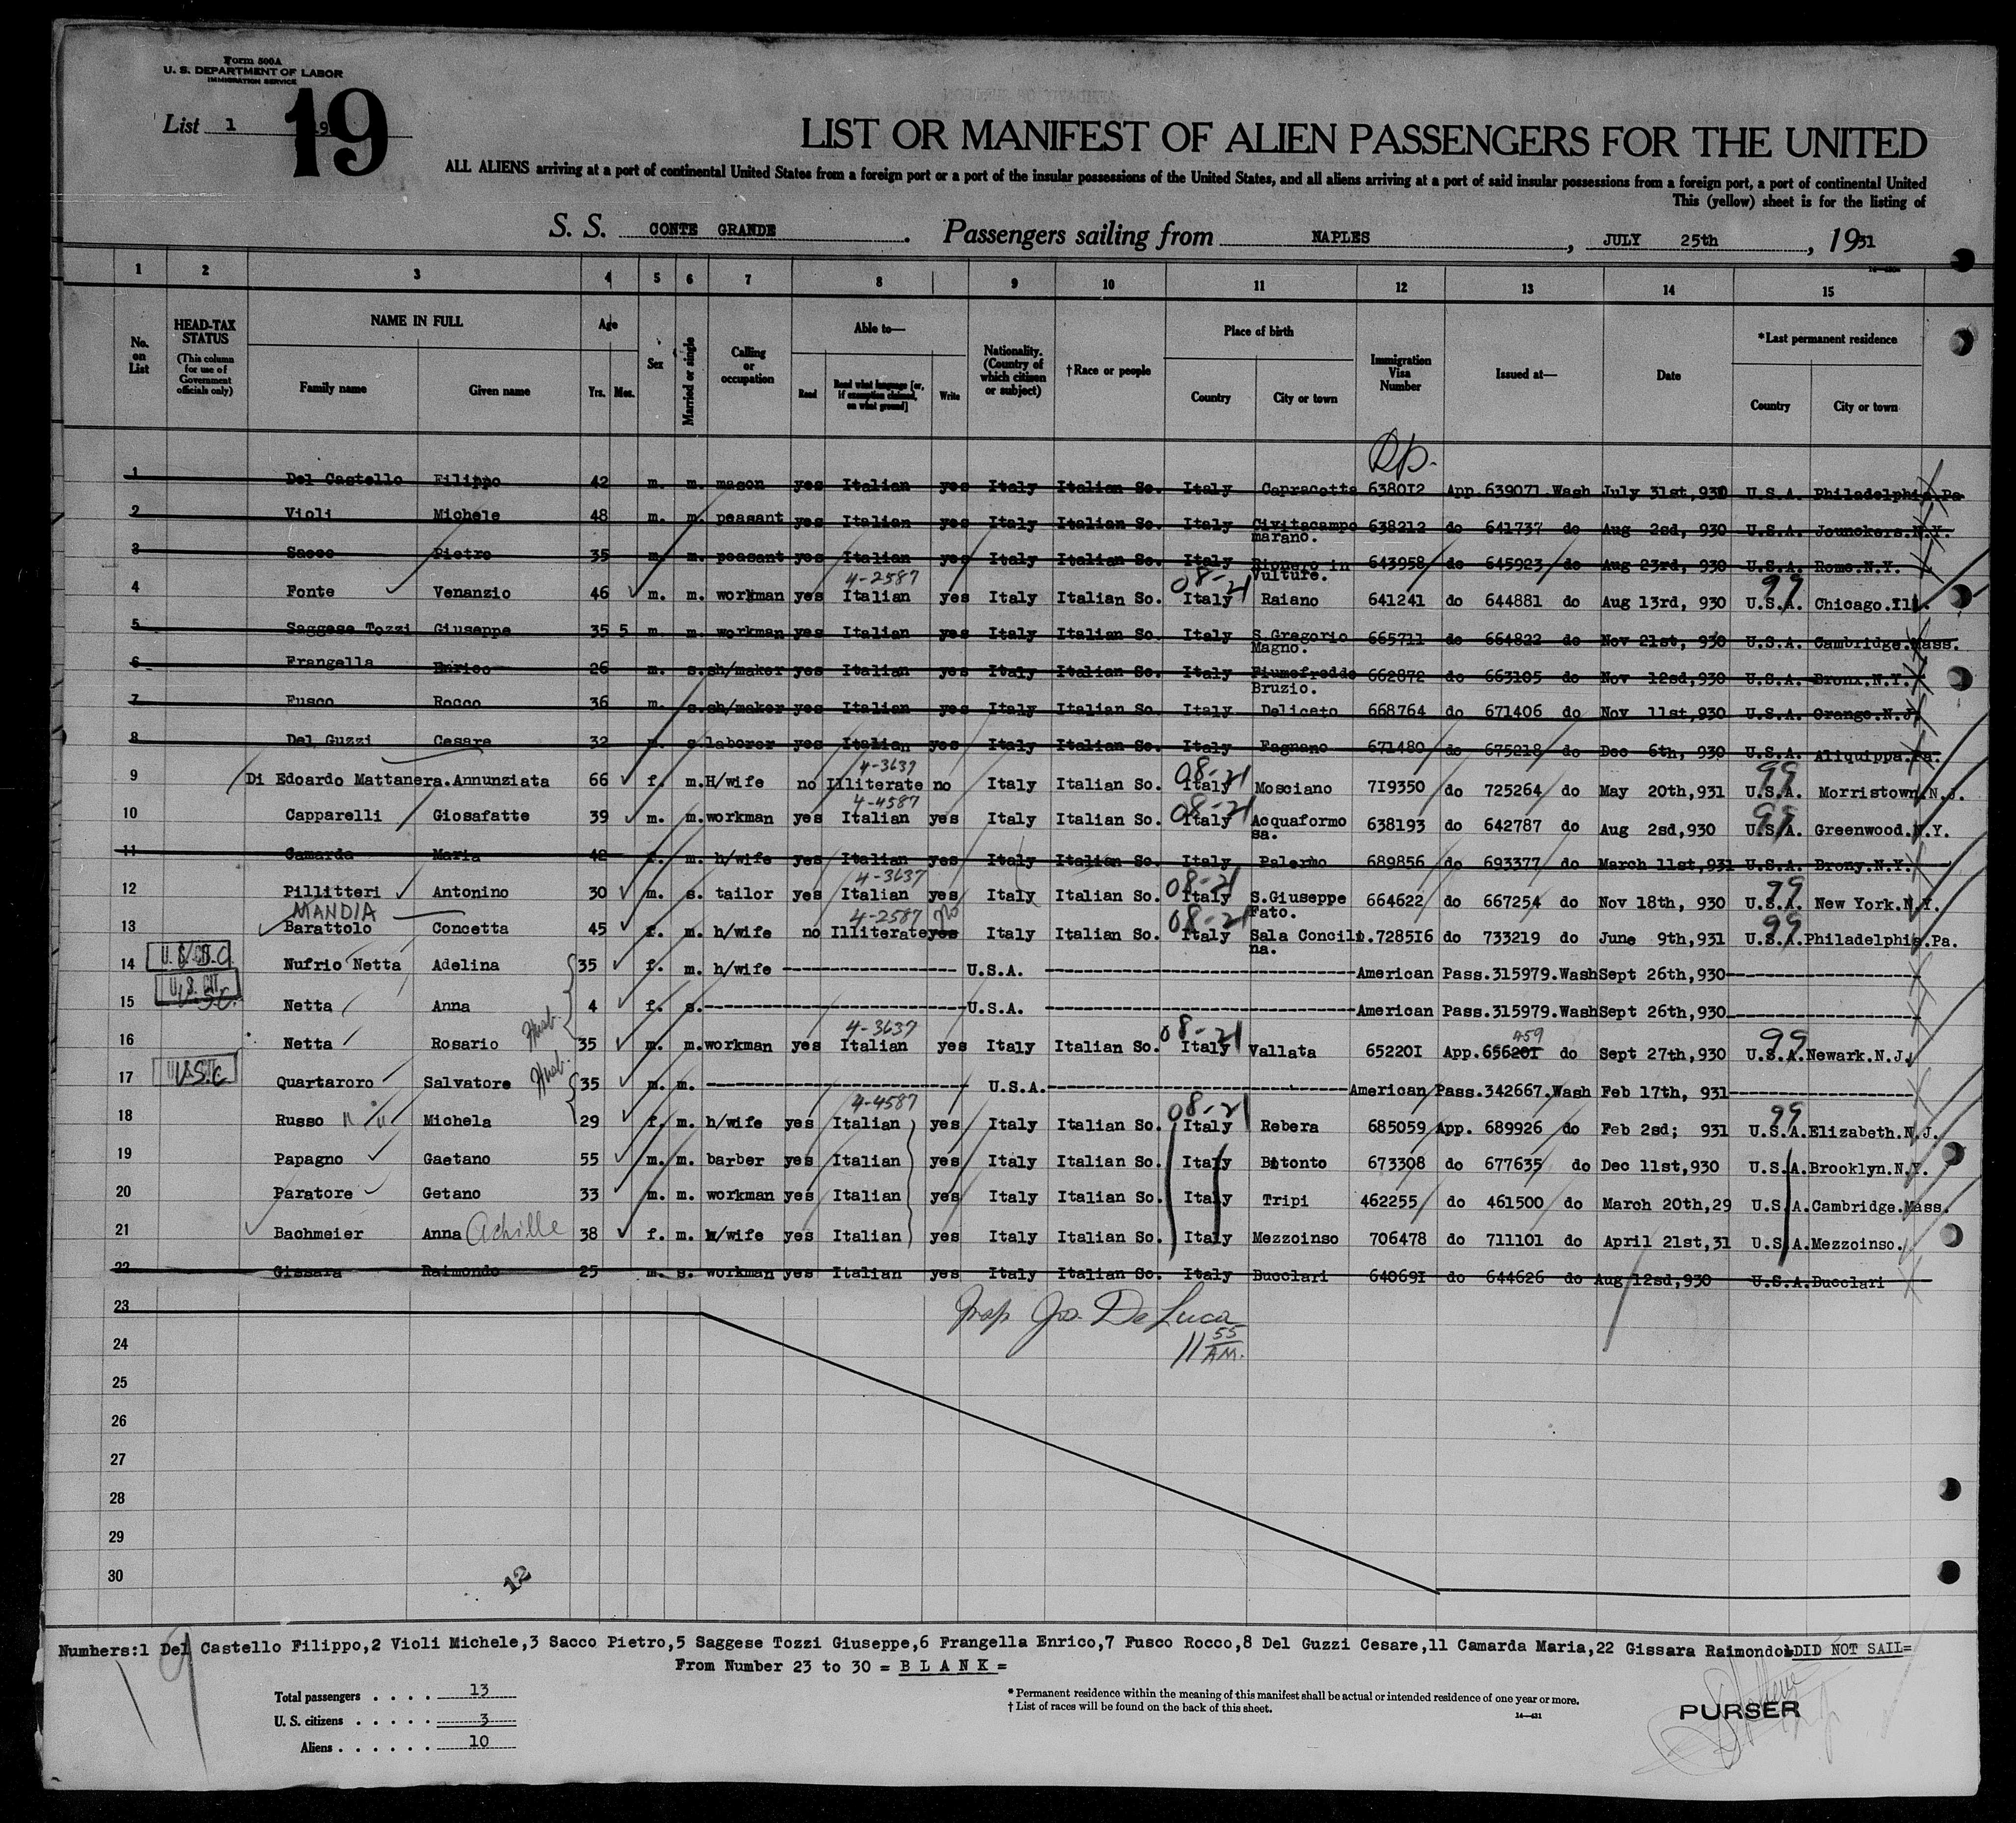 Form 500A
U. S. DEPARTMENT OF LABOR
IMMIGRATION SERVICE
List 1
19
LIST OR MANIFEST OF ALIEN PASSENGERS FOR THE UNITED
ALL ALIENS arriving at a port of continental United States from a foreign port or a port of the insular possessions of the United States, and all aliens arriving at a port of said insular possessions from a foreign port, a port of continental United
This (yellow) sheet is for the listing of
S. S. CONTE GRANDE. Passengers sailing from NAPLES, JULY 25th, 1931
1 2 3 4 5 6 7 8 9 10 11 12 13 14 15
No. on List
HEAD-TAX STATUS (This column for use of Government officials only)
NAME IN FULL Family name Given name
Age Yrs. Mos.
Sex
Married or single
Calling or occupation
Able to— Read Read what language [or, if exemption claimed, on what ground] Write
Nationality. (Country of which citizen or subject)
†Race or people
Place of birth Country City or town
Immigration Visa Number
Issued at—
Date
*Last permanent residence Country City or town
1 Del Castello Filippo 42 m. m. mason yes Italian yes Italy Italian So. Italy Capracotta 638012 App.639071.Wash July 31st,930 U.S.A. Philadelphia.Pa
2 Violi Michele 48 m. m. peasant yes Italian yes Italy Italian So. Italy Civitacampo marano. 638212 do 641737 do Aug 2sd, 930 U.S.A. Jounckers.N.Y.
3 Sacco Pietro 35 m. m. peasant yes Italian yes Italy Italian So. Italy Rionero in Vulture. 643958 do 645923 do Aug 23rd, 930 U.S.A. Rome.N.Y.
4-2587 08-21 99
4 Fonte Venanzio 46 m. m. workman yes Italian yes Italy Italian So. Italy Raiano 641241 do 644881 do Aug 13rd, 930 U.S.A. Chicago.Ill.
5 Saggese Tozzi Giuseppe 35 5 m. m. workman yes Italian yes Italy Italian So. Italy S.Gregorio Magno. 665711 do 664822 do Nov 21st, 930 U.S.A. Cambridge.Mass.
6 Frangella Enrico 26 m. s. sh/maker yes Italian yes Italy Italian So. Italy Fiumefreddo Bruzio. 662872 do 663105 do Nov 12sd,930 U.S.A. Bronx.N.Y.
7 Fusco Rocco 36 m. s. sh/maker yes Italian yes Italy Italian So. Italy Delicato 668764 do 671406 do Nov 11st,930 U.S.A. Orange.N.J.
8 Del Guzzi Cesare 32 m. s. laborer yes Italian yes Italy Italian So. Italy Fagnano 671480 do 675218 do Dec 6th, 930 U.S.A. Aliquippa.Pa.
4-3637 08-21 99
9 Di Edoardo Mattanera.Annunziata 66 f. m. H/wife no Illiterate no Italy Italian So. Italy Mosciano 719350 do 725264 do May 20th,931 U.S.A. Morristown.N.J.
4-4587 08-21 99
10 Capparelli Giosafatte 39 m. m. workman yes Italian yes Italy Italian So. Italy Acquaformo sa. 638193 do 642787 do Aug 2sd,930 U.S.A. Greenwood.N.Y.
11 Camarda Maria 42 f. m. h/wife yes Italian yes Italy Italian So. Italy Palermo 689856 do 693377 do March 11st,931 U.S.A. Brony.N.Y.
4-3637 08-21 99
12 Pillitteri Antonino 30 m. s. tailor yes Italian yes Italy Italian So. Italy S.Giuseppe Fato. 664622 do 667254 do Nov 18th, 930 U.S.A. New York.N.Y.
MANDIA 4-2587 no 08-21 99
13 Barattolo Concetta 45 f. m. h/wife no Illiterate yes Italy Italian So. Italy Sala Concili na. 728516 do 733219 do June 9th,931 U.S.A.Philadelphia.Pa.
14 U.S.C. Nufrio Netta Adelina 35 f. m. h/wife U.S.A. American Pass.315979.Wash Sept 26th,930
15 U.S.C. Netta Anna 4 f. s. U.S.A. American Pass.315979.Wash Sept 26th,930
Husb. 4-3637 08-21 459 99
16 Netta Rosario 35 m. m. workman yes Italian yes Italy Italian So. Italy Vallata 652201 App.656201 do Sept 27th,930 U.S.A.Newark.N.J.
17 U.S.C. Quartaroro Salvatore Husb. 35 m. m. U.S.A. American Pass.342667.Wash Feb 17th, 931
4-4587 08-21 99
18 Russo " " Michela 29 f. m. h/wife yes Italian yes Italy Italian So. Italy Rebera 685059 App. 689926 do Feb 2sd; 931 U.S.A.Elizabeth.N.J.
19 Papagno Gaetano 55 m. m. barber yes Italian yes Italy Italian So. Italy Bitonto 673308 do 677635 do Dec 11st,930 U.S.A.Brooklyn.N.Y.
20 Paratore Getano 33 m. m. workman yes Italian yes Italy Italian So. Italy Tripi 462255 do 461500 do March 20th,29 U.S.A.Cambridge.Mass.
21 Bachmeier Anna Achille 38 f. m. h/wife yes Italian yes Italy Italian So. Italy Mezzoinso 706478 do 711101 do April 21st,31 U.S.A.Mezzoinso.
22 Gissara Raimondo 25 m. s. workman yes Italian yes Italy Italian So. Italy Bucclari 640691 do 644626 do Aug 12sd,930 U.S.A.Bucclari
23
Insp Jos. De Luca
24
11 55 A.M.
25
26
27
28
29
30
12
Numbers:1 Del Castello Filippo,2 Violi Michele,3 Sacco Pietro,5 Saggese Tozzi Giuseppe,6 Frangella Enrico,7 Fusco Rocco,8 Del Guzzi Cesare,11 Camarda Maria,22 Gissara Raimondo=DID NOT SAIL=
From Number 23 to 30 = B L A N K =
Total passengers . . . . 13
U. S. citizens . . . . . 3
Aliens . . . . . . 10
* Permanent residence within the meaning of this manifest shall be actual or intended residence of one year or more.
† List of races will be found on the back of this sheet.
14—431
PURSER
19